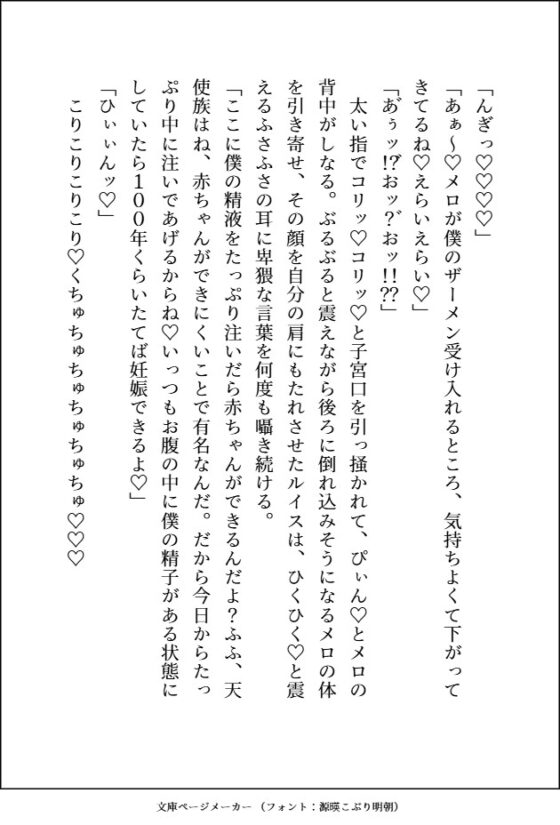 「んぎっ♡♡♡♡」
「あぁ〜♡メロが僕のザーメン受け入れるところ、気持ちよくて下がって
きてるね♡えらいえらい♡」
「あ゛ぅッ!?おッ?゛おッ!!??」
　太い指でコリッ♡コリッ♡と子宮口を引っ掻かれて、ぴぃん♡とメロの
背中がしなる。ぶるぶると震えながら後ろに倒れ込みそうになるメロの体
を引き寄せ、その顔を自分の肩にもたれさせたルイスは、ひくひく♡と震
えるふさふさの耳に卑猥な言葉を何度も囁き続ける。
「ここに僕の精液をたっぷり注いだら赤ちゃんができるんだよ？ふふ、天
使族はね、赤ちゃんができにくいことで有名なんだ。だから今日からたっ
ぷり中に注いであげるからね♡いっつもお腹の中に僕の精子がある状態に
していたら１００年くらいたてば妊娠できるよ♡」
「ひぃぃんッ♡」
　こりこりこりこり♡くちゅちゅちゅちゅちゅちゅ♡♡♡
文庫ページメーカー（フォント：源暎こぶり明朝）